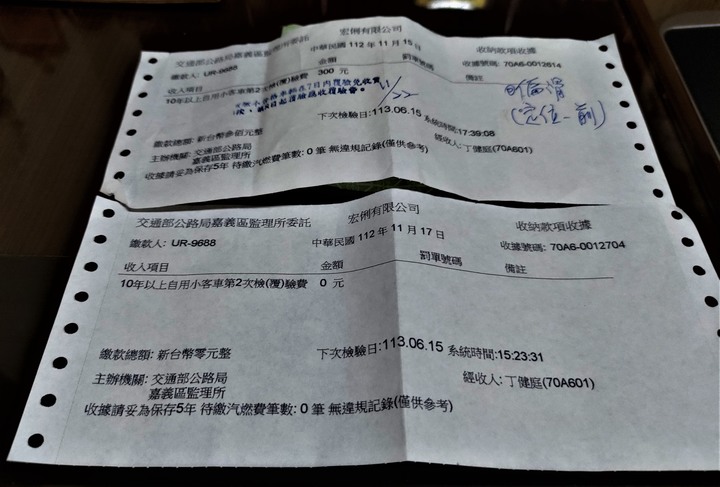 宏俐有限公司
交通部公路局嘉義區監理所委託
中華民國 112 年 11 月 15 日
收納款項收據
繳款人: UR-9688
金額
罰單號碼
收據號碼: 70A6-0012614
10年以上自用小客車第2次檢(覆)驗費 300 元
備註
11/22
(定位-前)
下次檢驗日:113.06.15 系統時間:17:39:08
繳款總額: 新台幣參佰元整
主辦機關: 交通部公路局
嘉義區監理所
經收人: 丁健庭(70A601)
收據請妥為保存5年 待繳汽燃費筆數: 0 筆 無違規記錄(僅供參考)
宏俐有限公司
交通部公路局嘉義區監理所委託
收納款項收據
繳款人: UR-9688
中華民國 112 年 11 月 17 日
收據號碼: 70A6-0012704
收入項目
金額
罰單號碼
備註
10年以上自用小客車第2次檢(覆)驗費 0 元
繳款總額: 新台幣零元整
下次檢驗日:113.06.15 系統時間:15:23:31
主辦機關: 交通部公路局
嘉義區監理所
經收人: 丁健庭(70A601)
收據請妥為保存5年 待繳汽燃費筆數: 0 筆 無違規記錄(僅供參考)